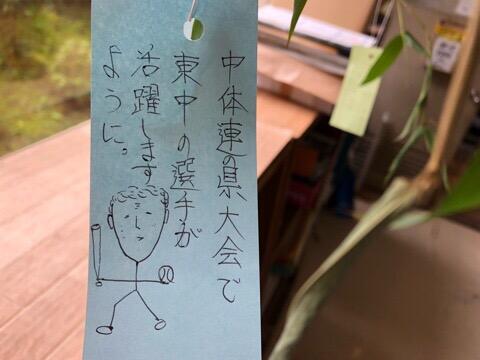 中体連の県大会で
東中の選手が
活躍します
ように。